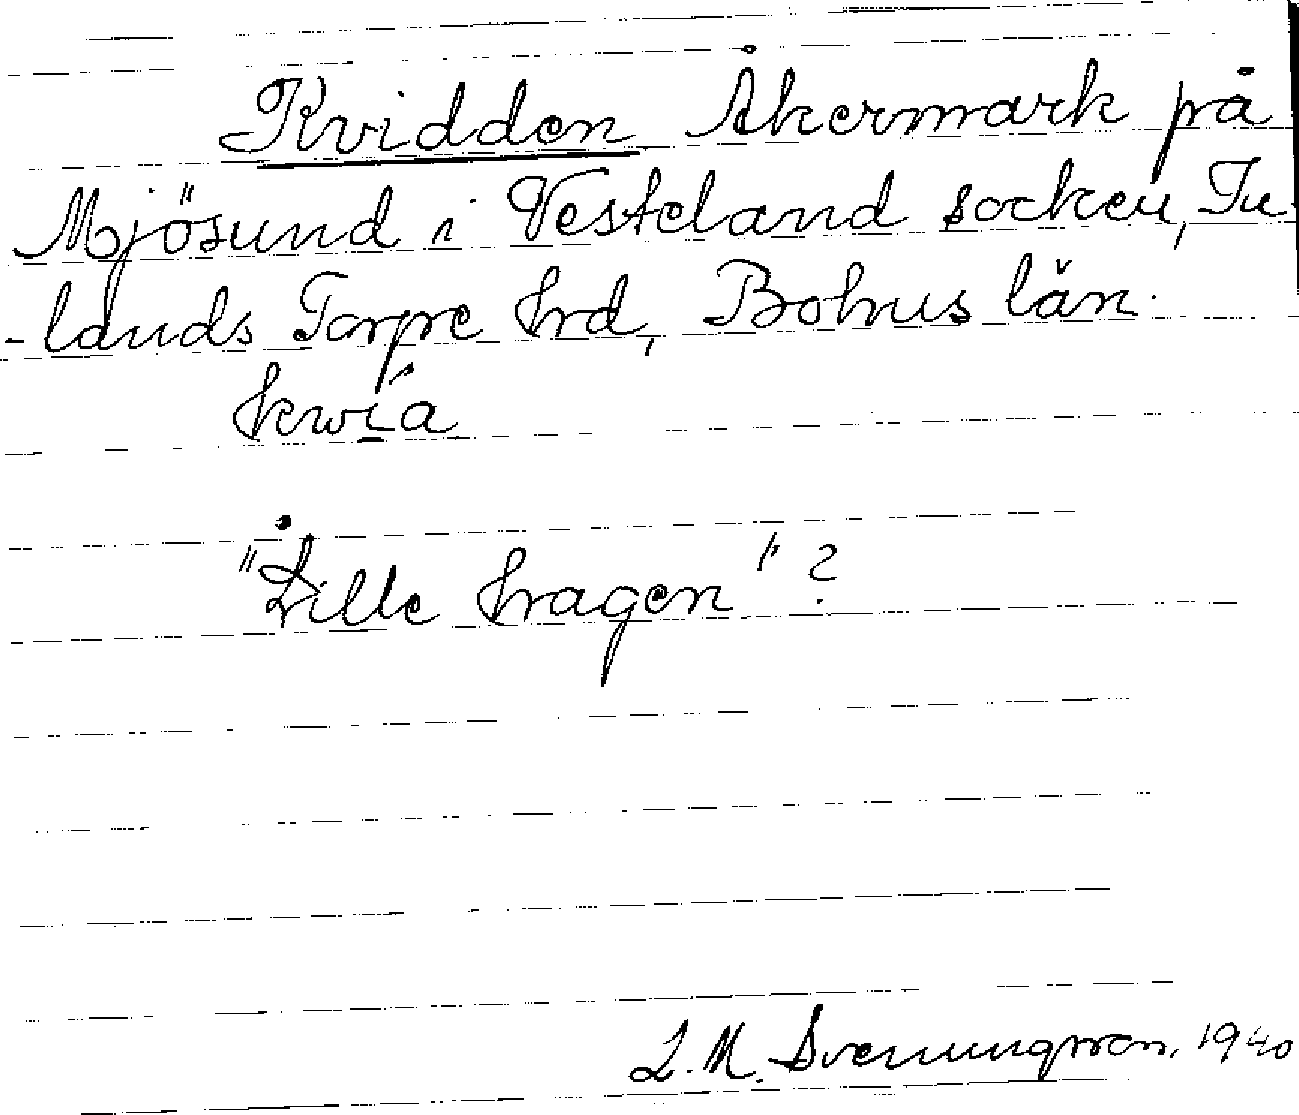 Kvidden Åkermark på
Mjösund i Vesteland socken, In
-lands Torpe hrd, Bohus län.
kwi̲´a
"Lille hragen"?
L. M. Svenungsson. 1940